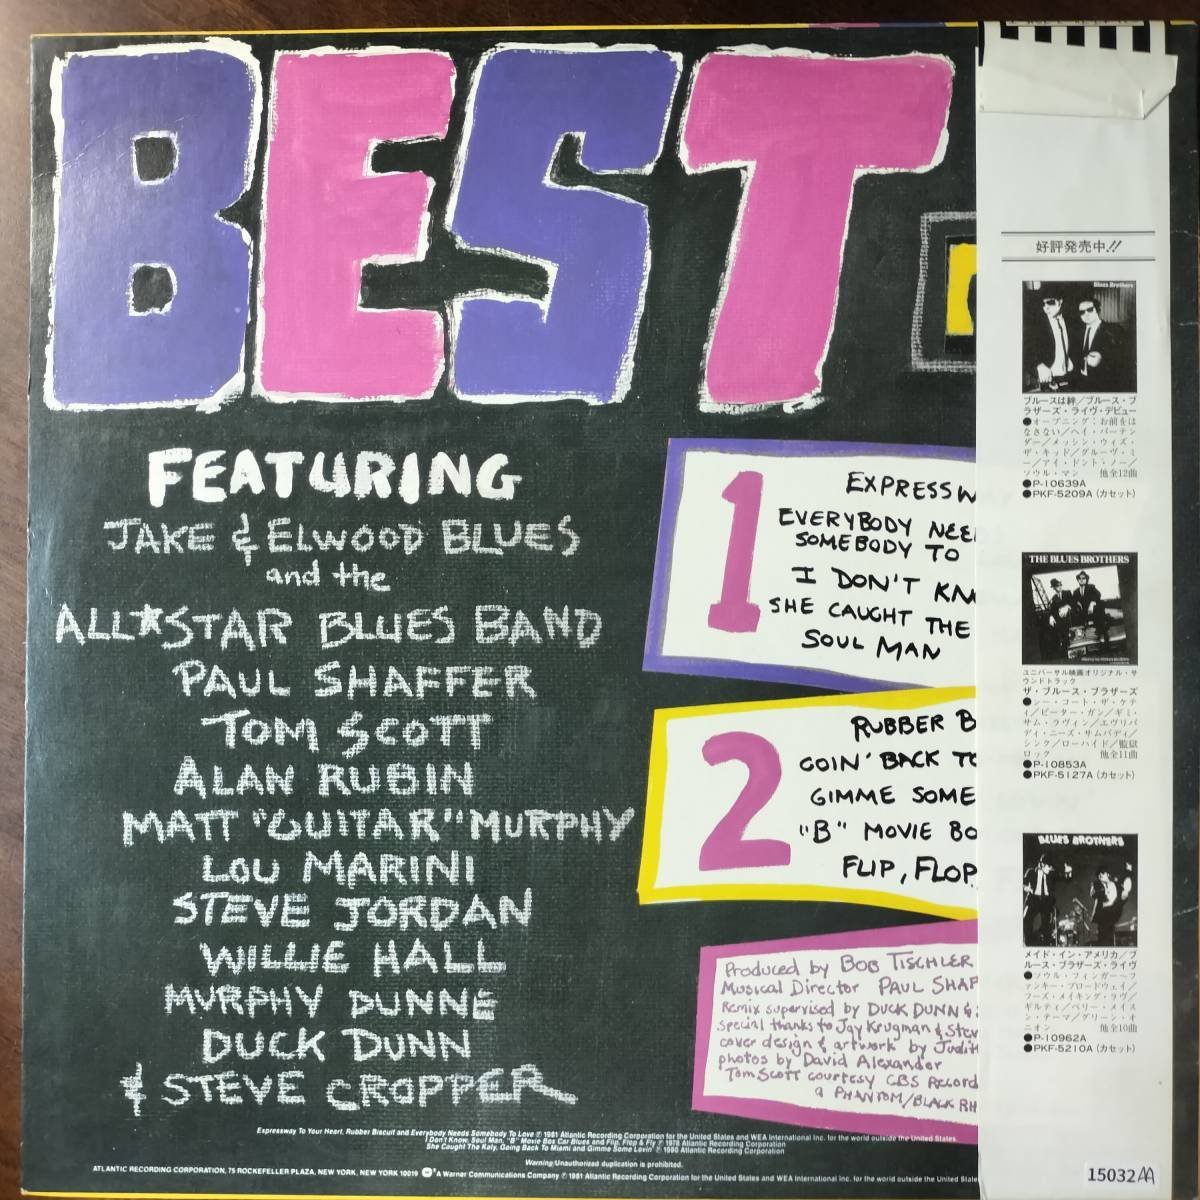 BEST
FEATURING
JAKE & ELWOOD BLUES
and the
ALL★STAR BLUES BAND
PAUL SHAFFER
TOM SCOTT
ALAN RUBIN
MATT "GUITAR" MURPHY
LOU MARINI
STEVE JORDAN
WILLIE HALL
MURPHY DUNNE
DUCK DUNN
& STEVE CROPPER
1
EXPRESSW
EVERYBODY NEE
SOMEBODY TO
I DON'T KN
SHE CAUGHT THE
SOUL MAN
2
RUBBER B
GOIN' BACK TO
GIMME SOME
"B" MOVIE BO
FLIP, FLOP,
Produced by BOB TISCHLER
Musical Director PAUL SHAF
Remix supervised by DUCK DUNN &
special thanks to Jay Krugman & Stev
cover design & artwork by Judit
photos by David Alexander
Tom Scott courtesy CBS Record
a PHANTOM/BLACK RH
Expressway To Your Heart, Rubber Biscuit and Everybody Needs Somebody To Love ℗ 1981 Atlantic Recording Corporation for the United States and WEA International Inc. for the world outside the United States
I Don't Know, Soul Man, "B" Movie Box Car Blues and Flip, Flop & Fly ℗ 1978 Atlantic Recording Corporation
She Caught The Katy, Going Back To Miami and Gimme Some Lovin' ℗ 1980 Atlantic Recording Corporation
Warning: Unauthorized duplication is prohibited.
ATLANTIC RECORDING CORPORATION, 75 ROCKEFELLER PLAZA, NEW YORK, NEW YORK 10019 A Warner Communications Company ℗ 1981 Atlantic Recording Corporation for the United States and WEA International Inc. for the world outside the United State
好評発売中!!
Blues Brothers
ブルースは絆/ブルース・ブ
ラザーズ・ライヴ・デビュー
●オープニング:お前をは
なさない/ヘイ・バーテン
ダー/メッシン・ウィズ・
ザ・キッド/グルーヴ・ミ
ー/アイ・ドント・ノー/
ソウル・マン 他全12曲
●P-10639A
●PKF-5209A(カセット)
THE BLUES BROTHERS
ユニバーサル映画オリジナル・サ
ウンドトラック
ザ・ブルース・ブラザーズ
●シー・コート・ザ・ケテ
ィ/ピーター・ガン/ギミ・
サム・ラヴィン/エヴリバ
ディ・ニーズ・サムバディ/
シンク/ローハイド/監獄
ロック 他全11曲
●P-10853A
●PKF-5127A(カセット)
BLUES BROTHERS
メイド・イン・アメリカ/ブ
ルース・ブラザーズ・ライヴ
●ソウル・フィンガー〜フ
ァンキー・ブロードウェイ/
フーズ・メイキング・ラヴ/
ギルティ/ペリー・メイス
ン・テーマ/グリーン・オ
ニオン 他全10曲
●P-10962A
●PKF-5210A(カセット)
15032AA